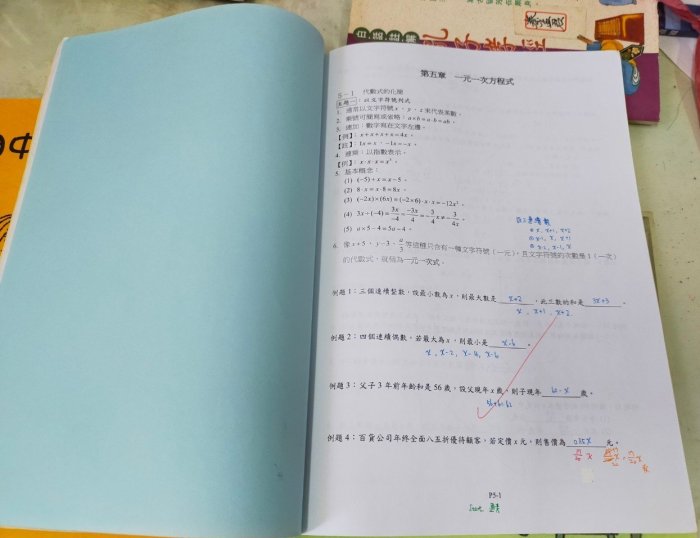 白話註解
第五章 一元一次方程式
5-1 代數式的化簡
主題一：以文字符號列式
1. 通常以文字符號 x、y、z 來代表某數。
2. 乘號可簡寫或省略：a×b=a·b=ab。
3. 連加：數字寫在文字左邊。
【例】：x+x+x+x=4x。
【註】：1x=x，-1x=-x。
4. 連乘：以指數表示。
【例】：x·x·x=x³。
5. 基本概念：
(1) (-5)+x=x-5。
(2) 8·x=x·8=8x。
(3) (-2x)×(6x)=(-2×6)·x·x=-12x²。
(4) 3x÷(-4)=3x/-4=-3x/4=-3/4 x≠-3/4x。
(5) a×5-4=5a-4。
6. 像 x+5、y-3、a/3 等這種只含有一種文字符號（一元），且文字符號的次數是 1（一次）
的代數式，就稱為一元一次式。
例題 1：三個連續整數，設最小數為 x，則最大數是 x+2，此三數的和是 3x+3。
x, x+1, x+2
例題 2：四個連續偶數，若最大為 x，則最小是 x-6。
x, x-2, x-4, x-6
例題 3：父子 3 年前年齡和是 56 歲，設父現年 x 歲，則子現年 62-x 歲。
56+6=62
例題 4：百貨公司年終全面八五折優待顧客，若定價 x 元，則售價為 0.85x 元。
P5-1